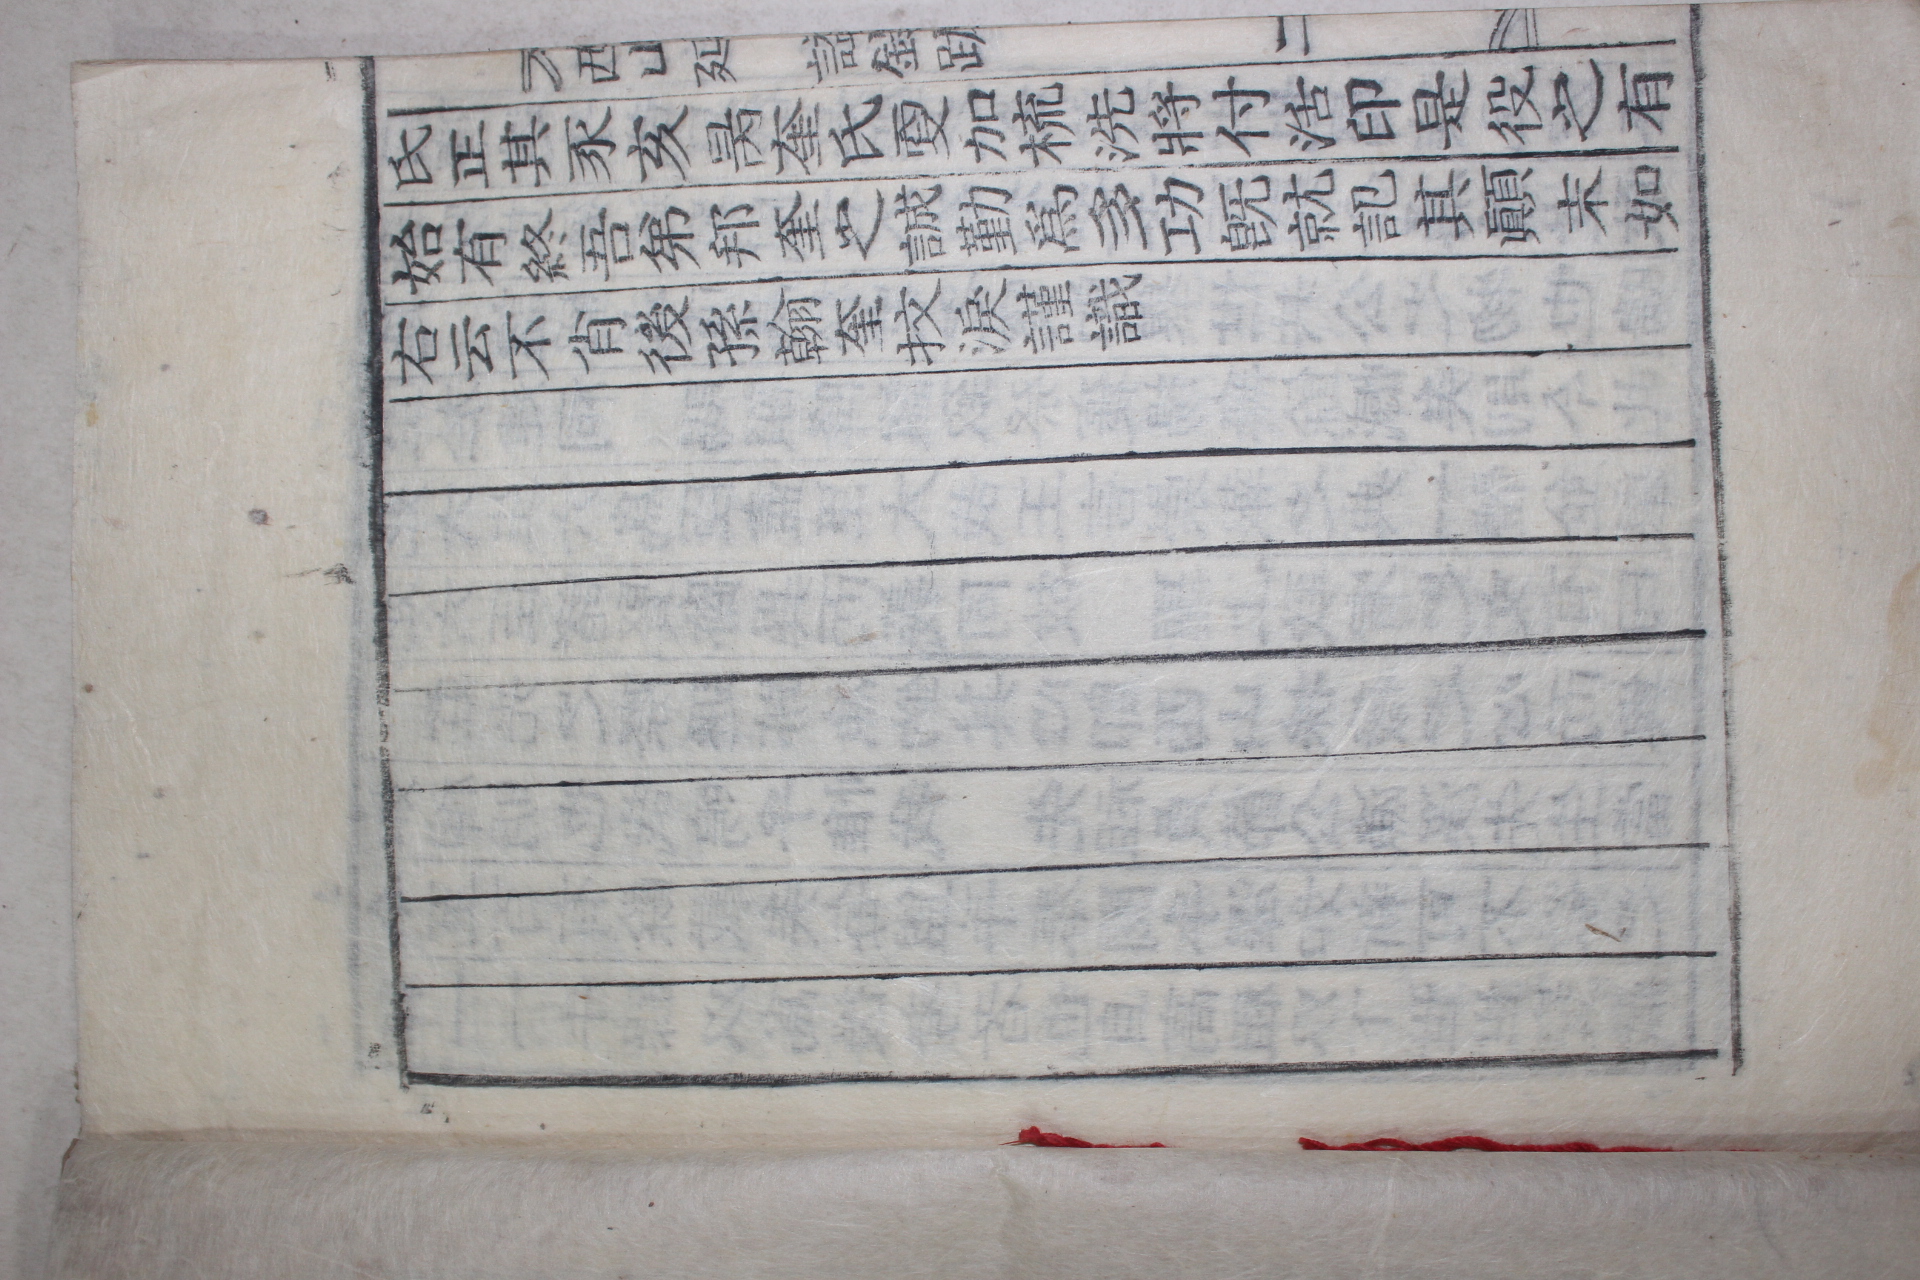 西山延諡錄跋
二
氏正其豕亥昺奎氏更加梳洗將付活印是役之有
始有終吾弟邦奎之誠勤爲多功旣就記其顚末如
右云不肖後孫翰奎抆淚謹識